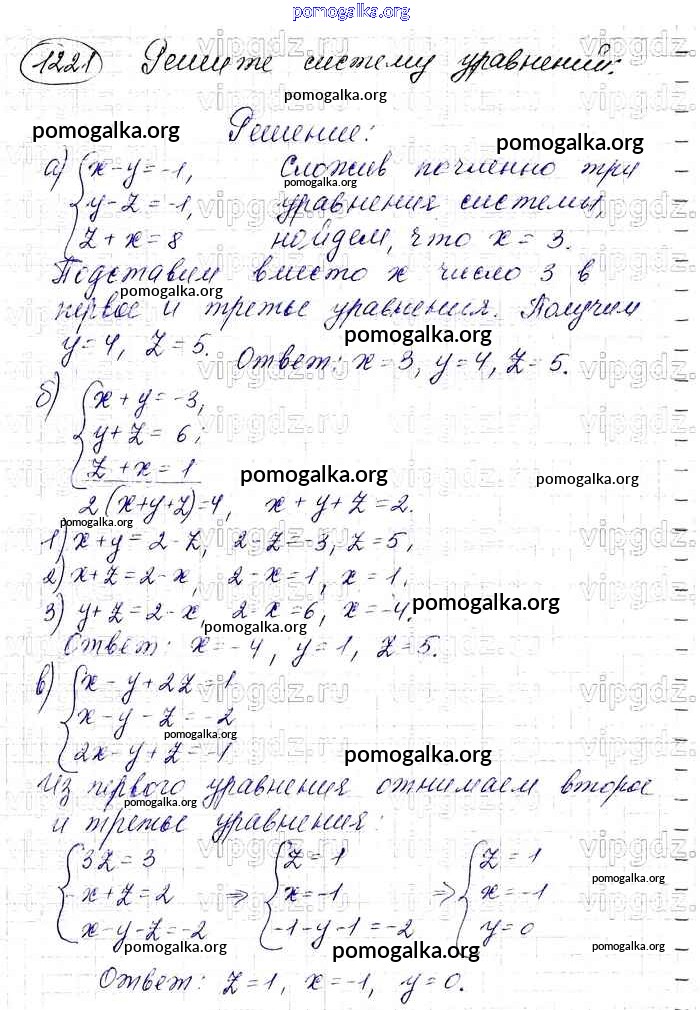 pomogalka.org
1221 Решите систему уравнений:
pomogalka.org
pomogalka.org Решение: pomogalka.org
а) x-y=-1, Сложив почленно три
pomogalka.org
y-z=-1, уравнения системы,
z+x=8 найдем, что x=3.
Подставим вместо x число 3 в
pomogalka.org
первое и третье уравнения. Получим
pomogalka.org
y=4, z=5. Ответ: x=3, y=4, z=5.
б) x+y=-3,
y+z=6;
z+x=1 pomogalka.org
pomogalka.org
2(x+y+z)=4, x+y+z=2.
pomogalka.org
1) x+y=2-z, 2-z=-3, z=5,
2) x+z=2-x, 2-x=1, x=1,
3) y+z=2-x, 2-x=6, x=-4. pomogalka.org
pomogalka.org
Ответ: x=-4, y=1, z=5.
в) x-y+2z=1
x-y-z=-2
pomogalka.org
2x-y+z=-1 pomogalka.org
Из первого уравнения отнимаем второе
pomogalka.org
и третье уравнения:
3z=3 z=1 z=1
pomogalka.org
-x+z=2 ⇒ x=-1 ⇒ x=-1
x-y-z=-2 -1-y-1=-2 y=0
pomogalka.org pomogalka.org pomogalka.org
Ответ: z=1, x=-1, y=0.
vipgdz.ru